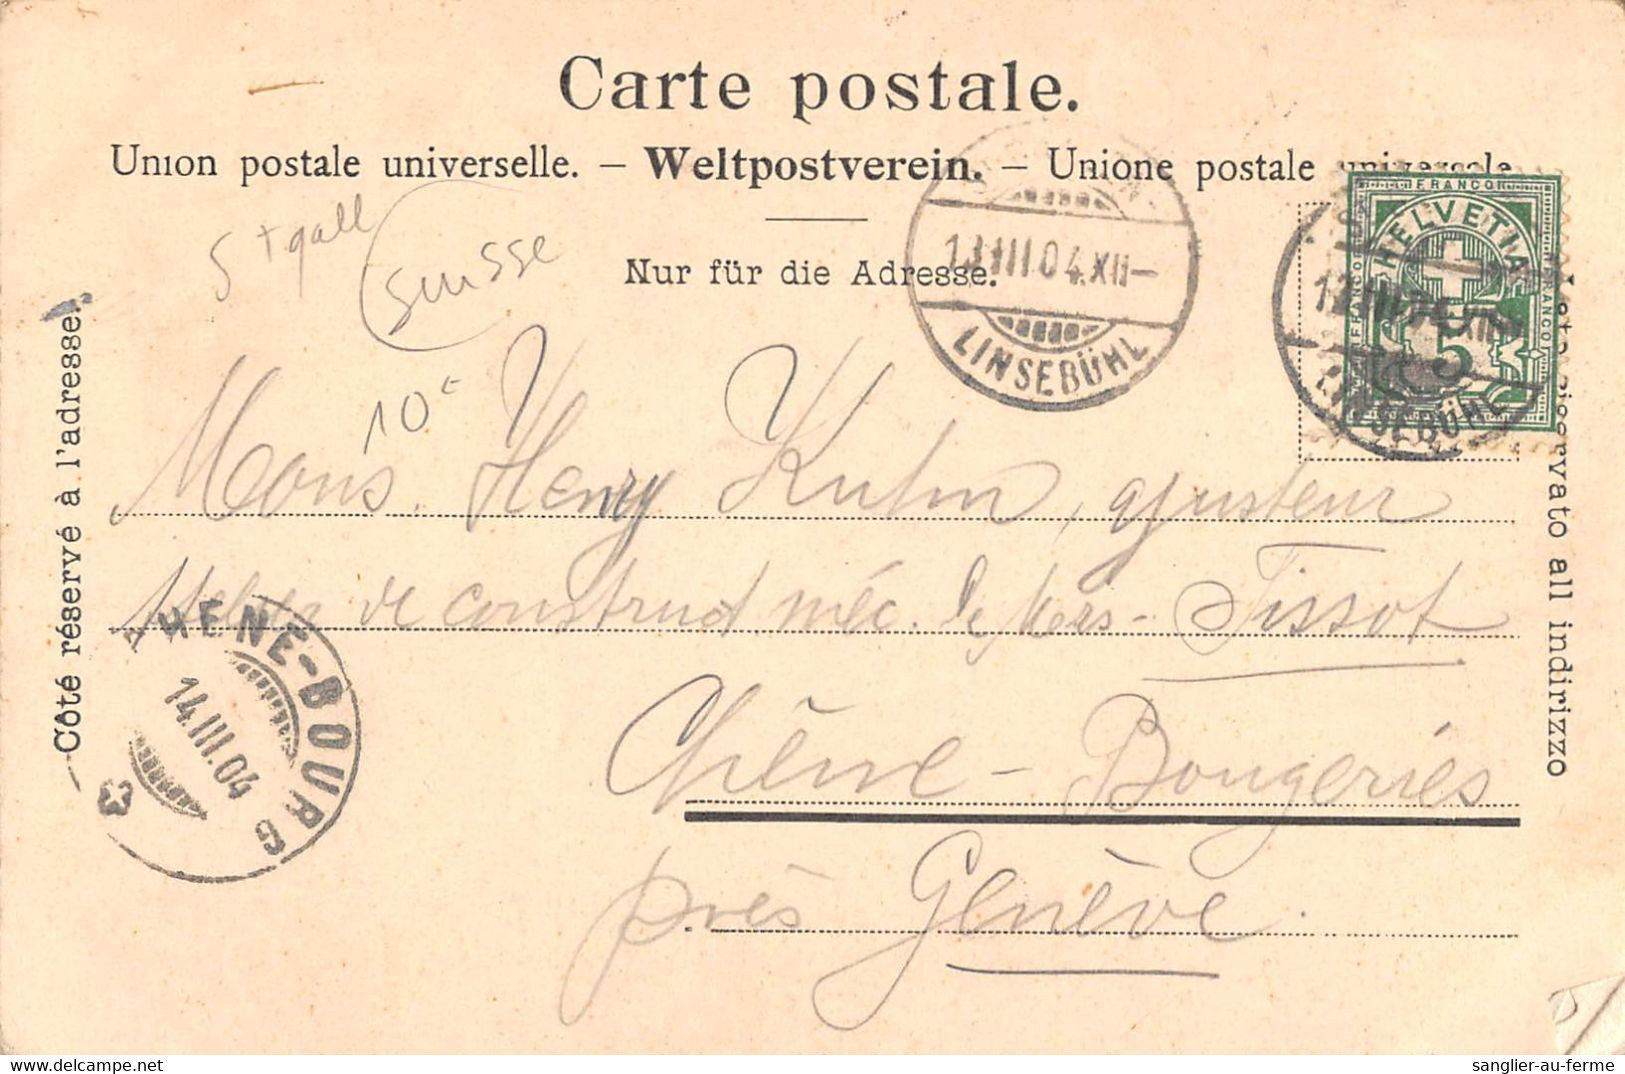 Carte postale.
Union postale universelle. – Weltpostverein. – Unione postale universale
Nur für die Adresse.
Côté réservé à l'adresse.
Lato riservato all indirizzo
St gall
Suisse
10€
LINSEBÜHL
13.III.04.XII–
FRANCO
HELVETIA
FRANCO
FRANCO
5
LINSEBÜHL
Mons. Henry Kuhn, ajusteur
Atelier de construct méc. de Mers. Tissot
Chêne-Bougeries
près Genève.
CHENE-BOURG
14.III.04
sanglier-au-ferme